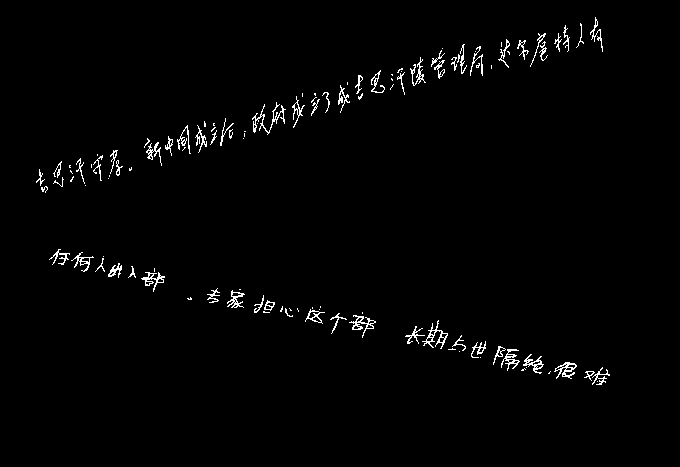 吉思汗守孝。新中国成立后,政府成立了成吉思汗陵管理局,达尔扈特人有
任何人出入部 。专家担心这个部 长期与世隔绝,很难